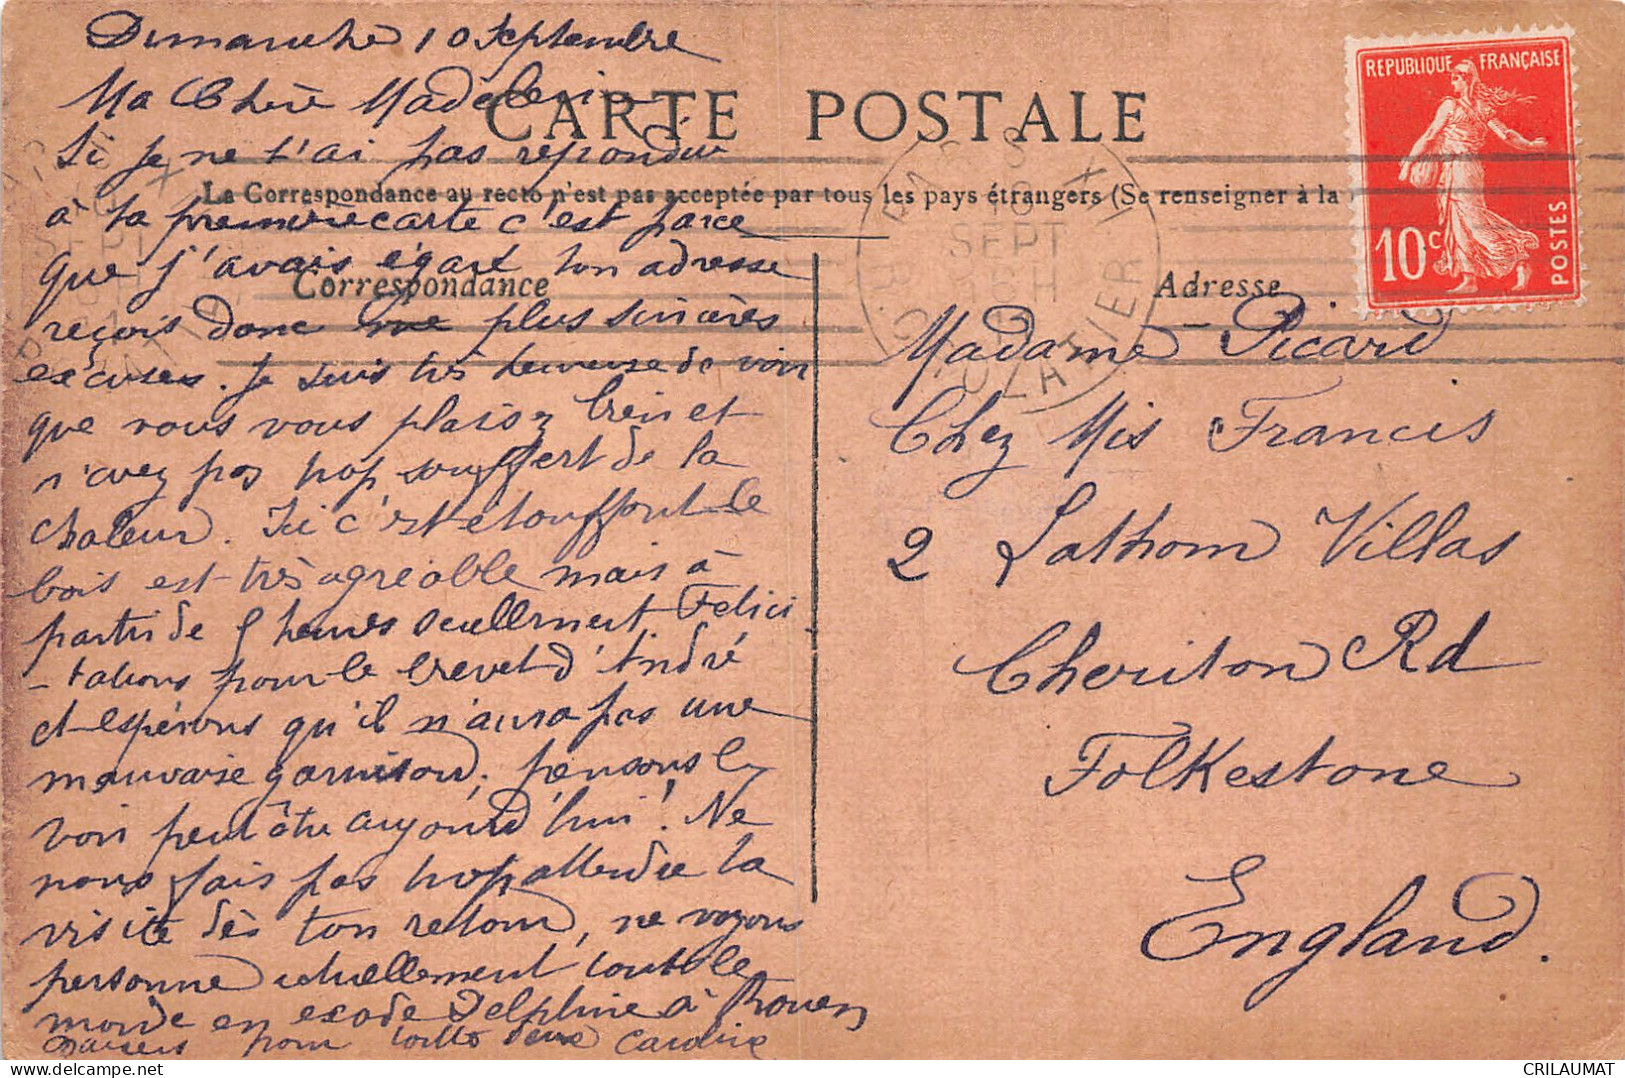 Dimanche 10 Septembre
Ma Chère Madeleine
CARTE POSTALE
REPUBLIQUE FRANÇAISE
10c
POSTES
Si je ne t'ai pas répondu
La Correspondance au recto n'est pas acceptée par tous les pays étrangers (Se renseigner à la
à ta première carte c'est parce
que j'avais égaré ton adresse
Correspondance
Adresse
SEPT
16 H
reçois donc me plus sincères
excuses. Je suis très heureuse de voir
que vous vous plaisez bien et
n'avez pas trop souffert de la
chaleur. Ici c'est étouffant le
bois est très agréable mais à
partir de 5 heures seulement Félici
-tations pour le brevet d'André
et espérons qu'il n'aura pas une
mauvaise garnison, pensons le
voir peut être aujourd'hui! Ne
nous fais pas trop attendre ta
visite dès ton retour, ne voyons
personne actuellement tout le
monde en exode Delphine à Rouen
Baisers pour toutes deux Caroline
Madame Picard
Chez Mis Francis
2 Lathom Villas
Cheriton Rd
Folkestone
England.
CRILAUMAT